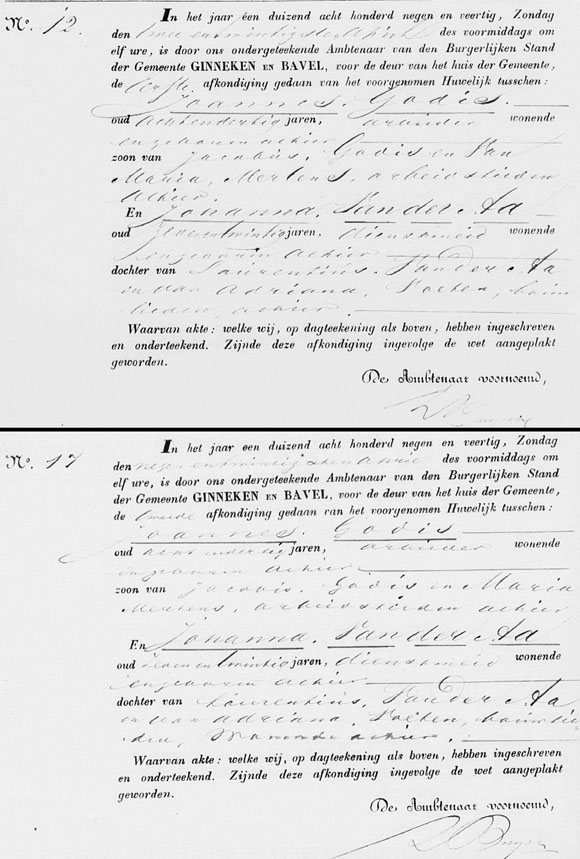 No. 12.
In het jaar één duizend acht honderd negen en veertig, Zondag
den twee en twintigsten April des voormiddags om
elf ure, is door ons ondergeteekende Ambtenaar van den Burgerlijken Stand
der Gemeente GINNEKEN EN BAVEL, voor de deur van het huis der Gemeente,
de eerste afkondiging gedaan van het voorgenomen Huwelijk tusschen:
Joannes. Godis.
oud achtendertig jaren, arbeider wonende
en geboren alhier
zoon van Jacobus. Godis en van
Maria, Mertens, arbeidslieden
alhier.
En Johanna. Van der Aa
oud zeven en twintig jaren, dienstmeid wonende
en geboren alhier
dochter van Laurentius. Van der Aa
en van Adriana, bouw
lieden, alhier.
Waarvan akte: welke wij, op dagteekening als boven, hebben ingeschreven
en onderteekend. Zijnde deze afkondiging ingevolge de wet aangeplakt
geworden.
De Ambtenaar voornoemd,
No. 17
In het jaar een duizend acht honderd negen en veertig, Zondag
den negen en twintigsten April des voormiddags om
elf ure, is door ons ondergeteekende Ambtenaar van den Burgerlijken Stand
der Gemeente GINNEKEN EN BAVEL, voor de deur van het huis der Gemeente,
de tweede afkondiging gedaan van het voorgenomen Huwelijk tusschen:
Joannes. Godis
oud acht en dertig jaren, arbeider wonende
en geboren alhier
zoon van Jacobis. Godis en Maria
Mertens, arbeidslieden alhier
En Johanna. Van der Aa
oud zeven en twintig jaren, dienstmeid wonende
en geboren alhier
dochter van Laurentius, Van der Aa
en van Adriana, bouwlie
den, alhier.
Waarvan akte: welke wij, op dagteekening als boven, hebben ingeschreven
en onderteekend. Zijnde deze afkondiging ingevolge de wet aangeplakt
geworden.
De Ambtenaar voornoemd,